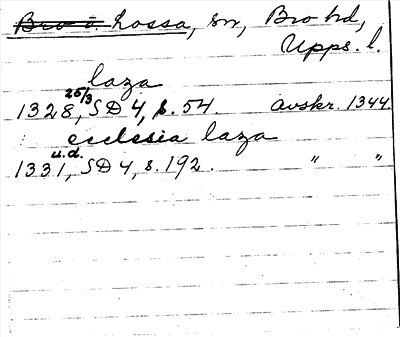 Bro o. Lossa, sn, Bro hd,
Upps. l.
laza
1328 25/3, SD 4, s. 54. avskr. 1344
ecclesia laza
1331 u.d., SD 4, s. 192. " "